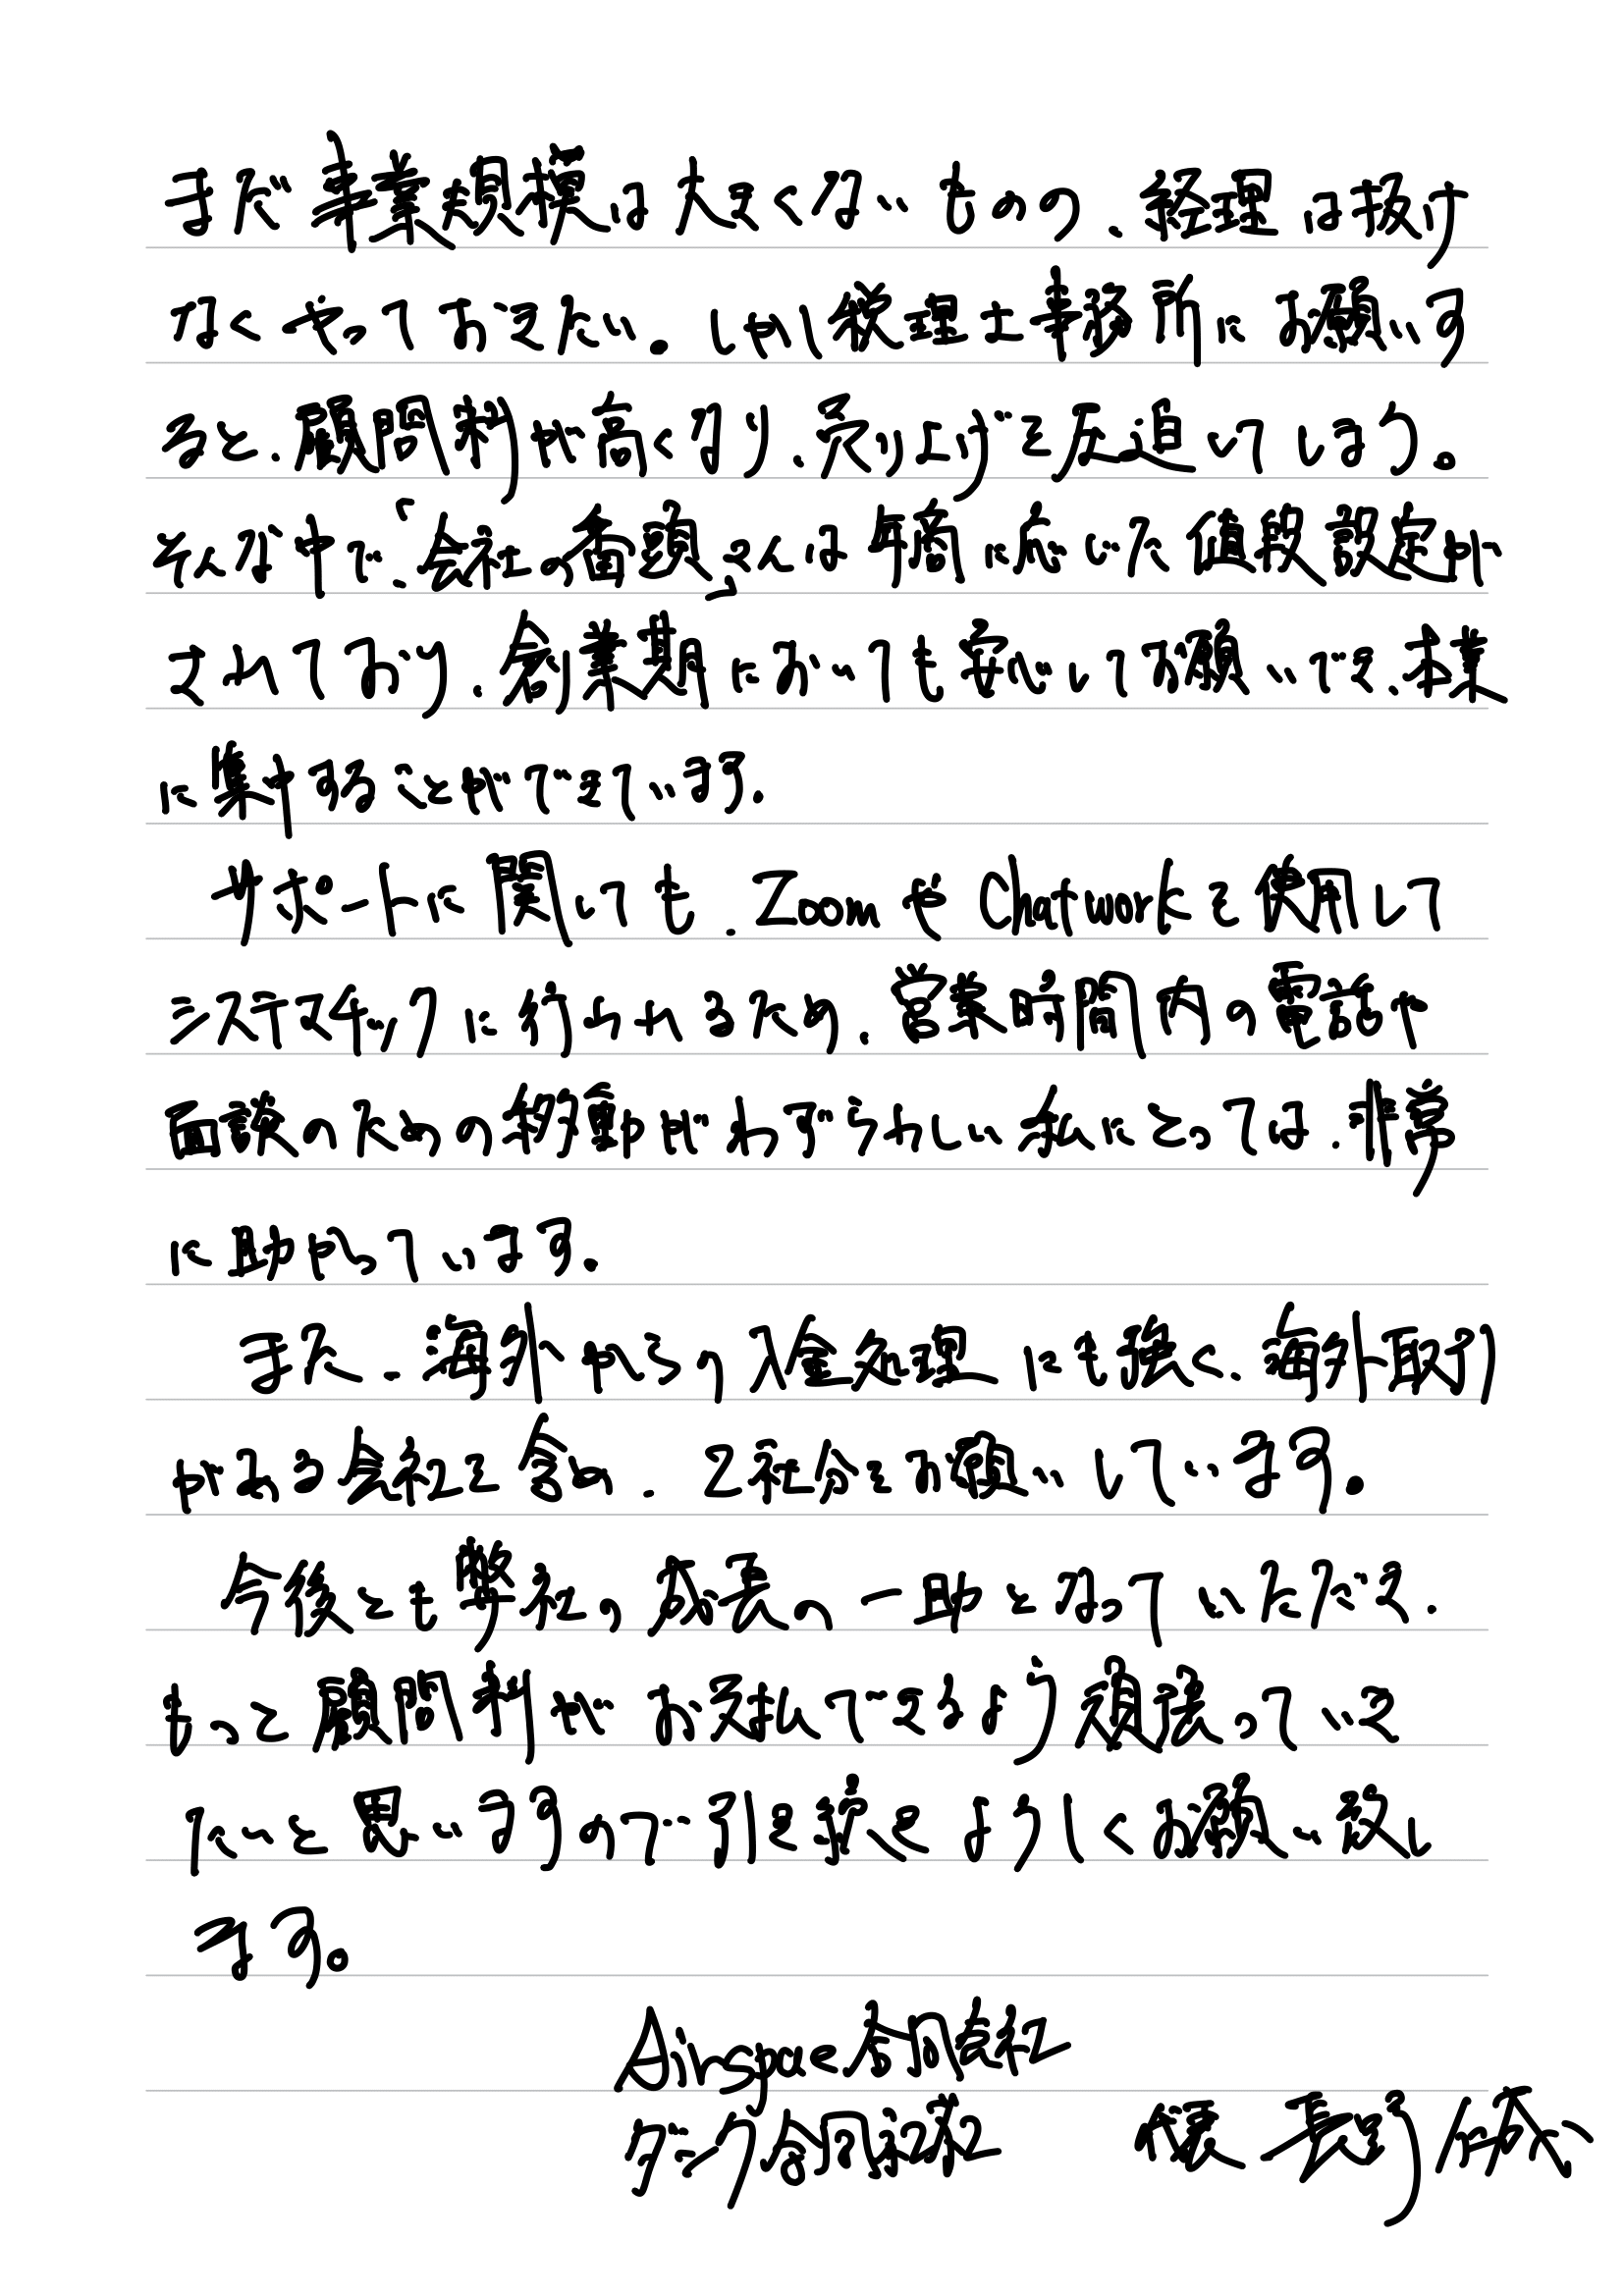 まだ事業規模は大きくないものの、経理は抜け
なくやっておきたい。しかし税理士事務所にお願いす
ると、顧問料が高くなり、売り上げを圧迫してしまう。
そんな中で、「会社の番頭」さんは年商に応じた値段設定が
されており、創業期においても安心してお願いでき、本業
に集中することができています。
サポートに関しても、ZoomやChatworkを使用して
システマチックに行われるため、営業時間内の電話や
面談のための移動がわずらわしい私にとっては、非常
に助かっています。
また、海外からの入金処理にも強く、海外取引
がある会社を含め、2社分をお願いしています。
今後とも弊社の成長の一助となっていただき、
もっと顧問料がお支払できるよう頑張っていき
たいと思いますので引き続きよろしくお願い致し
ます。
Airspace合同会社
ダンク合同会社 代表 長野